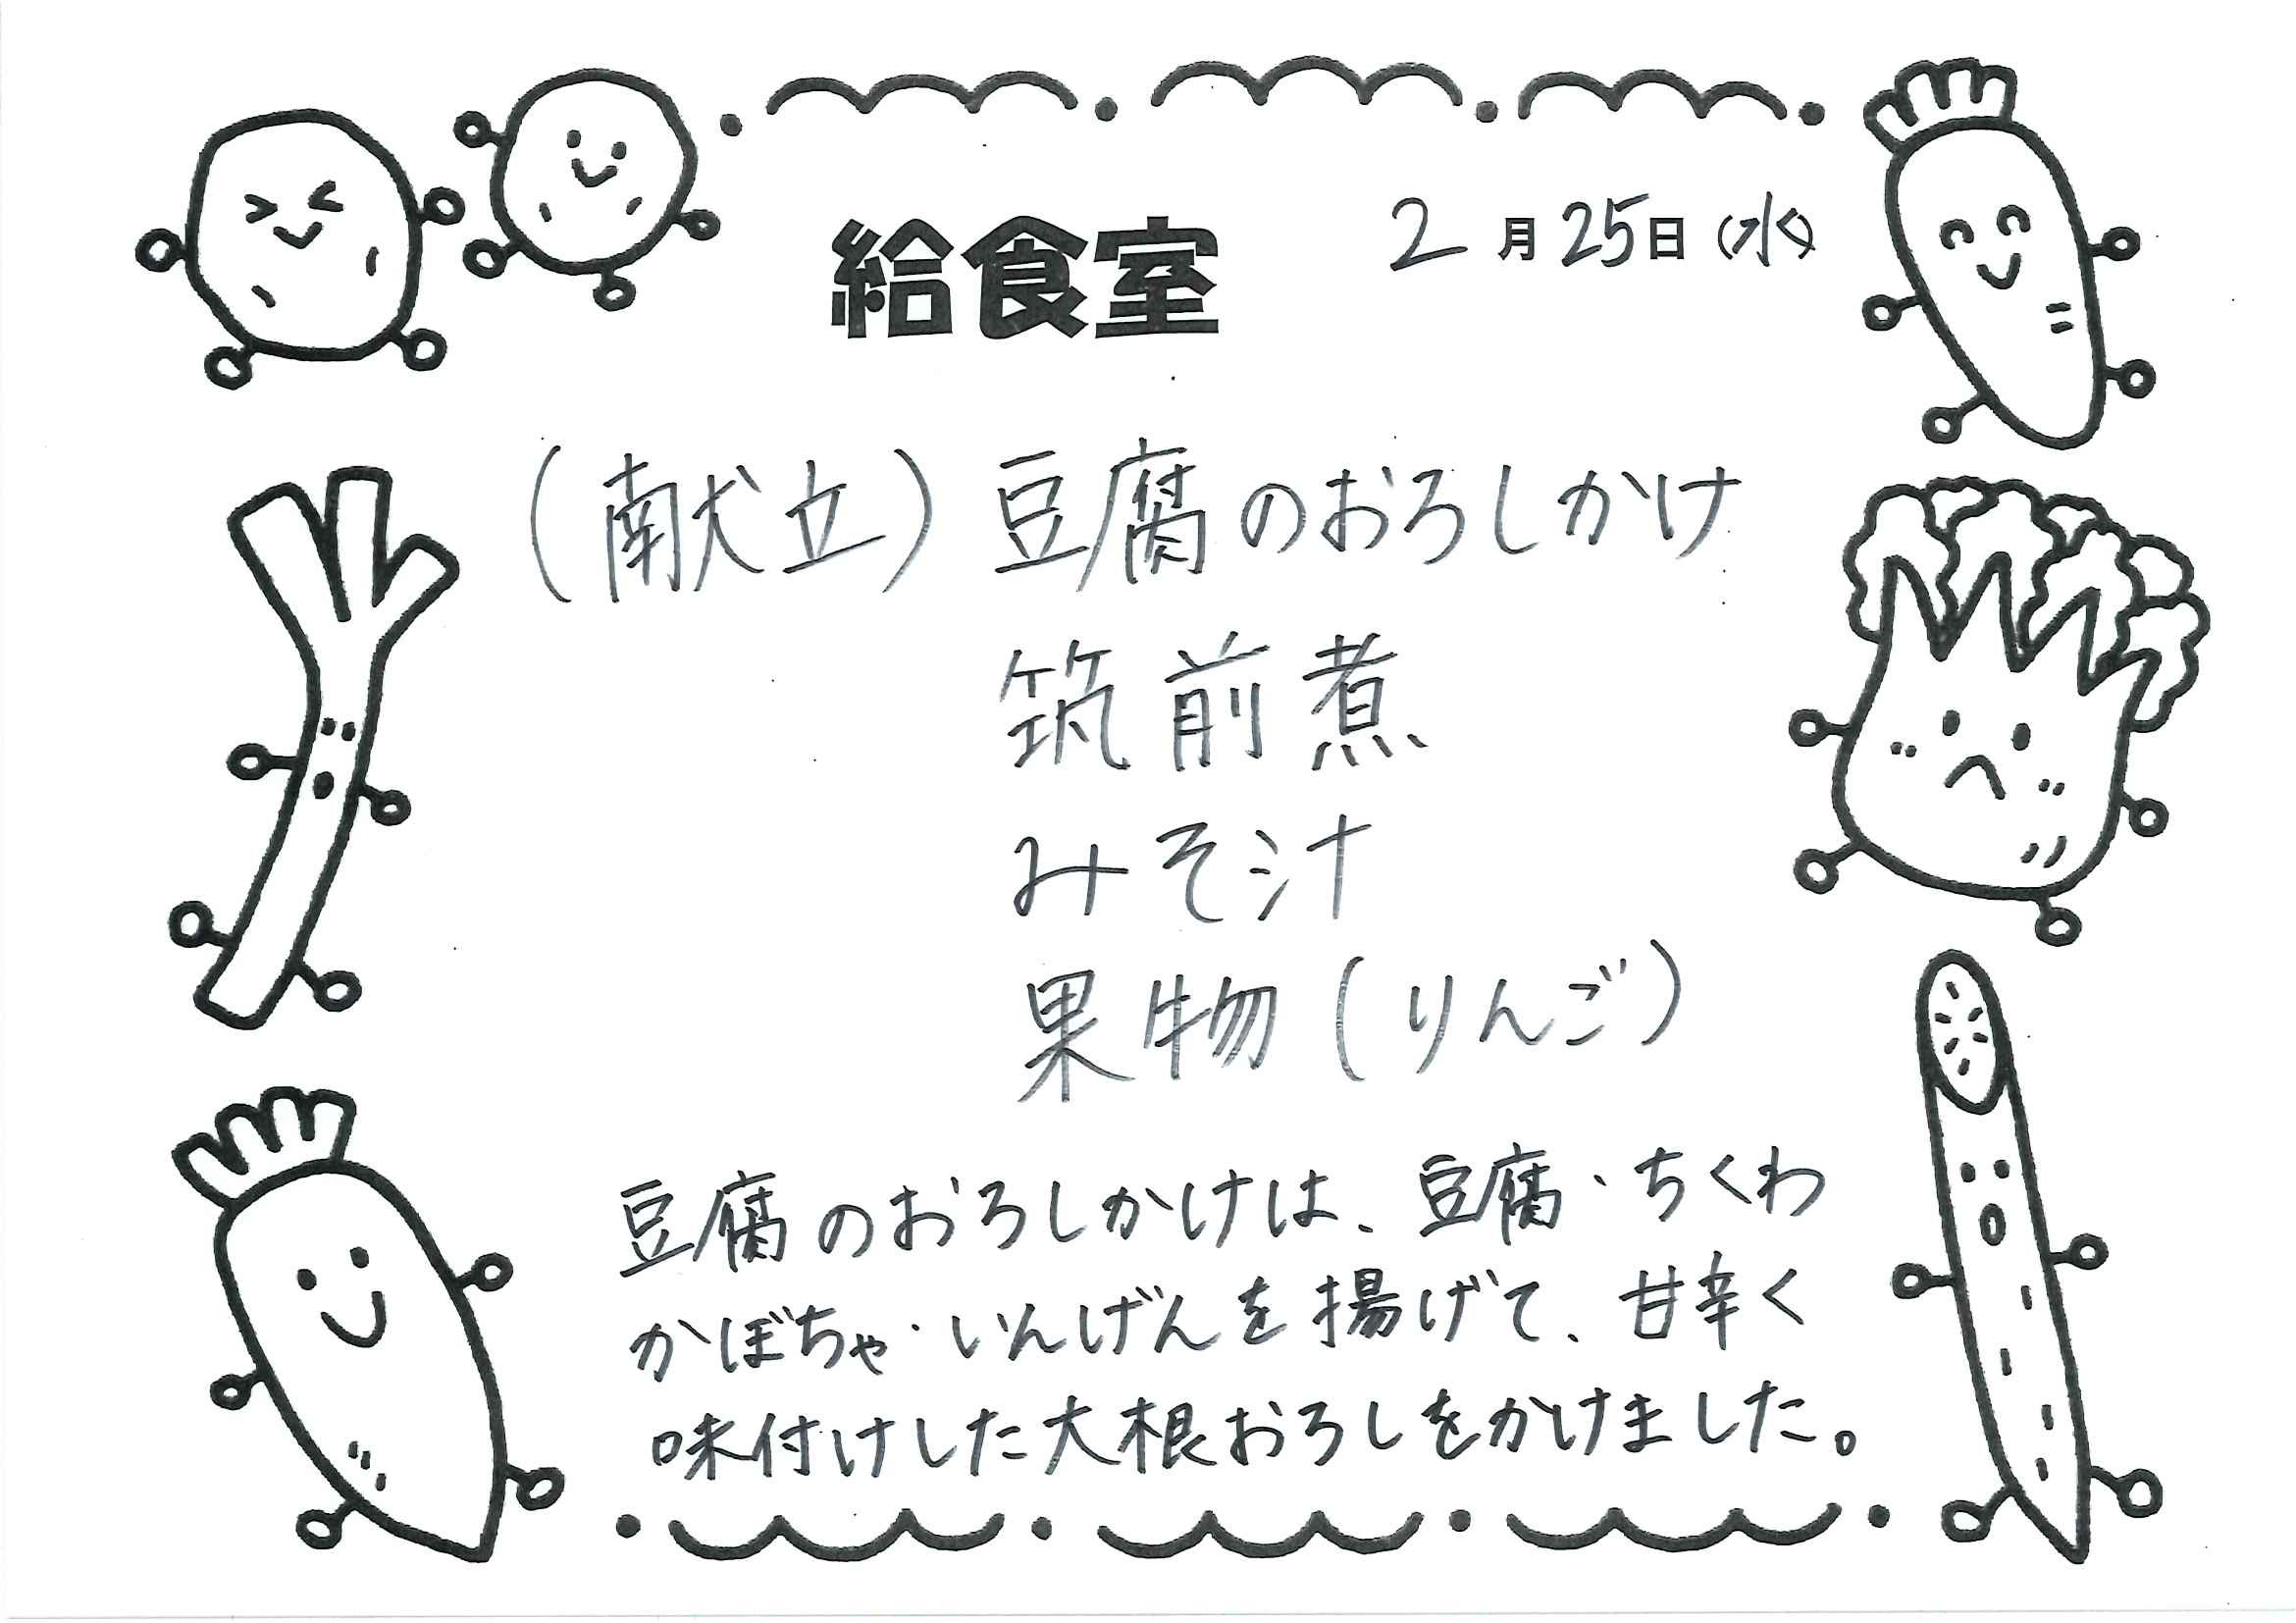 給食室
2月25日(水)
(献立) 豆腐のおろしかけ
筑前煮
みそ汁
果物(りんご)
豆腐のおろしかけは、豆腐・ちくわ
かぼちゃ・いんげんを揚げて、甘辛く
味付けした大根おろしをかけました。